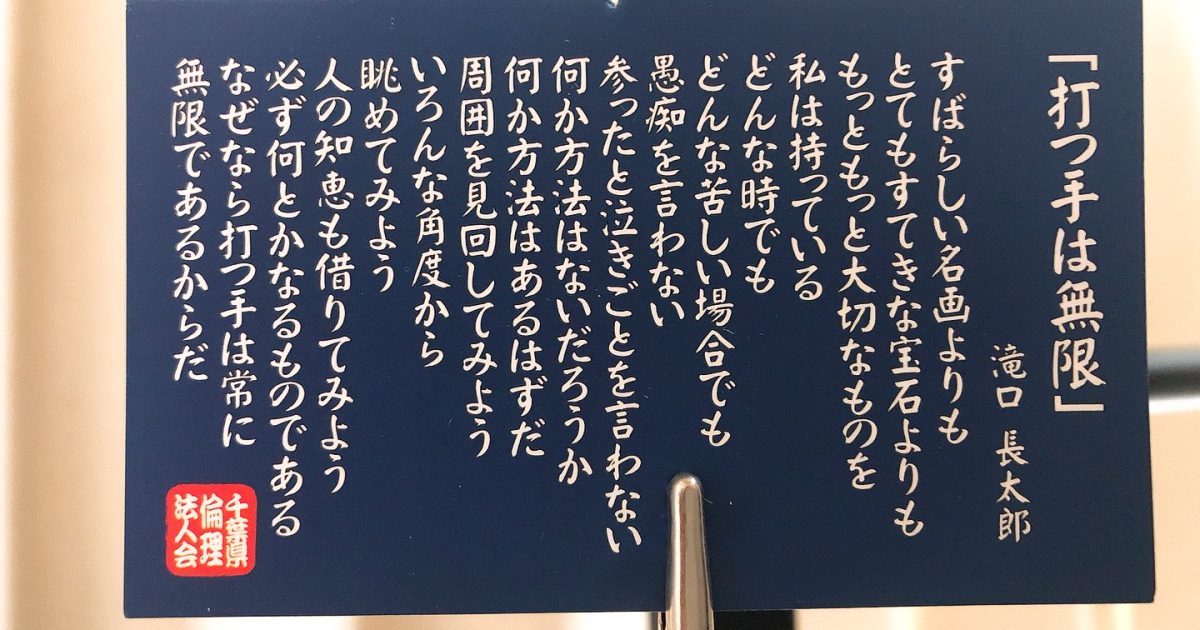 「打つ手は無限」
滝口 長太郎
すばらしい名画よりも
とてもすてきな宝石よりも
もっともっと大切なものを
私は持っている
どんな時でも
どんな苦しい場合でも
愚痴を言わない
参ったと泣きごとを言わない
何か方法はないだろうか
何か方法はあるはずだ
周囲を見回してみよう
いろんな角度から
眺めてみよう
人の知恵も借りてみよう
必ず何とかなるものである
なぜなら打つ手は常に
無限であるからだ
千葉県
倫理
法人会